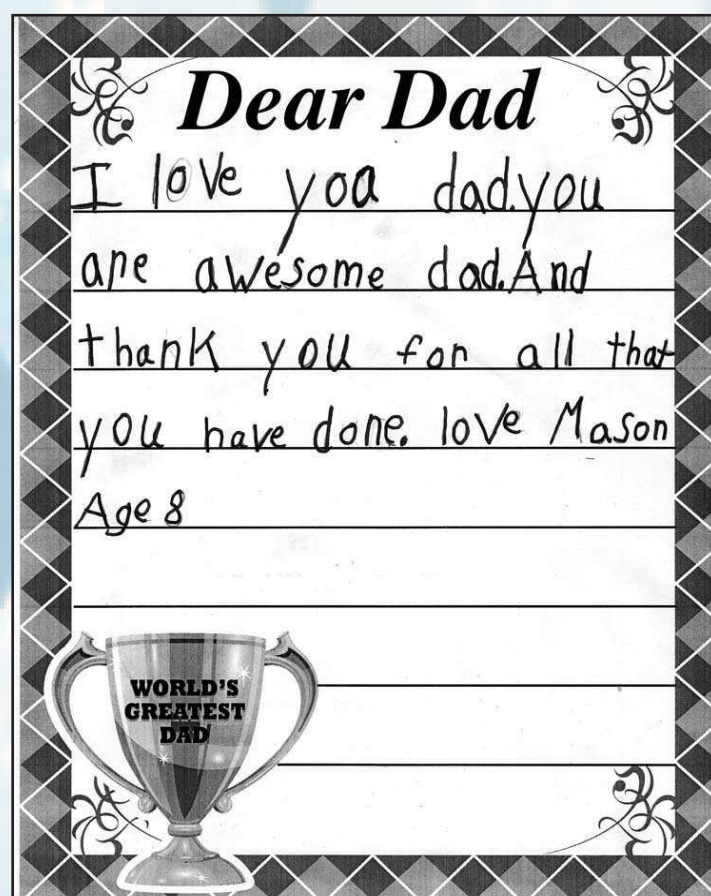 Dear Dad
I love yoa dad.you
are awesome dad.And
thank you for all that
you have done. love Mason
Age 8
WORLD'S
GREATEST
DAD